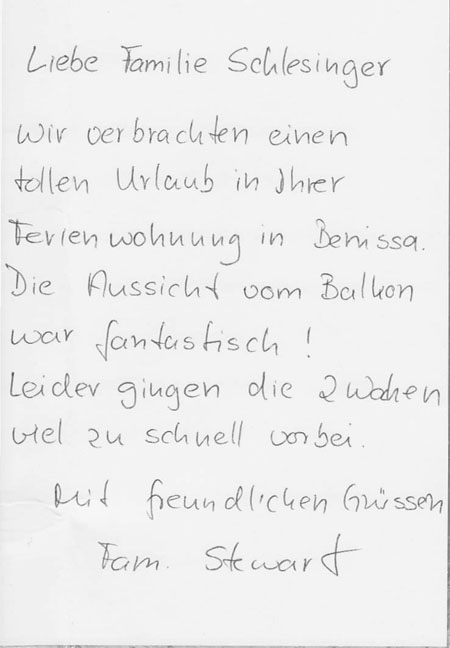 Liebe Familie Schlesinger
Wir verbrachten einen
tollen Urlaub in Ihrer
Ferienwohnung in Benissa.
Die Aussicht vom Balkon
war fantastisch!
Leider gingen die 2 Wochen
viel zu schnell vorbei.
Mit freundlichen Grüssen
Fam. Stewart